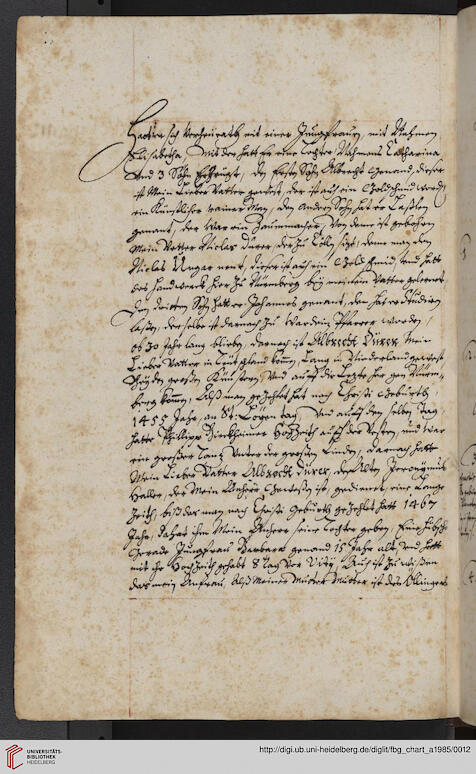 hatt er sich verheirath mit einer Jungfrauen, mit Nahmen
Elisabetha, mit der hatt Er eine tochter Nahmens Catharina
vnd 3 Söhn Erzeugt, den Ersten Sohn Albrecht genand, dieser
ist Mein Lieber Vatter gewest, der ist auch ein Goldschmid word,
ein Künstlicher rainer Man, den andern Sohn hat er Laßlen
genant, der war ein Zaummacher, Von dem ist gebohren
Mein Vetter Niclas Dürer, der zu Cölln sizt, denn man den
Niclas Unger nent, dieser ist auch ein Goldschmid, vnd hatt
das handwerck hier zu Nürmberg bey meinem Vatter gelernet
Den dritten Sohn hatt er Johannes genant, den hat er Studiren
laßen, derselbe ist darnach zu Wardein Pfarrer worden,
ob 30 Jahr lang blieben, darnach ist Albrecht Dürer Mein
Lieber Vatter in Teutschland komen, Lang in Niderland gewest
bey den großen Künstern, vnd auf die Lezte her gen Nürm-
berg komen, Alß man gezehlet hat nach Christi Geburth
1455 Jahr, an St: Loyen tag, vnd auf den selben tag
hatte Philipp Birckheimer Hochzeith auf der Vesten, vnd war
ein großer tanz vnter der großen Linden, darnach hatte
Mein Lieber Vatter Albrecht Dürer, den Alten Jeronymus
Haller, der Mein Anherr gewesen ist, gedienet, eine Lange
Zeith, biß das man nach Christi Geburth gezehlet hatt 1467
Jahr, da hat ihm Mein Anherr seine tochter geben, Eine hübsche
Gerade Jungfrau Barbara genand 15 Jahr alt, vnd hatt
mit ihr Hochzeith gehabt 8 tag vor Viti, Auch ist zu wißen
das mein Anfrau, Alß Meiner Mutter Mutter ist des Öllingers
UNIVERSITÄTS-
BIBLIOTHEK
HEIDELBERG
http://digi.ub.uni-heidelberg.de/diglit/fbg_chart_a1985/0012